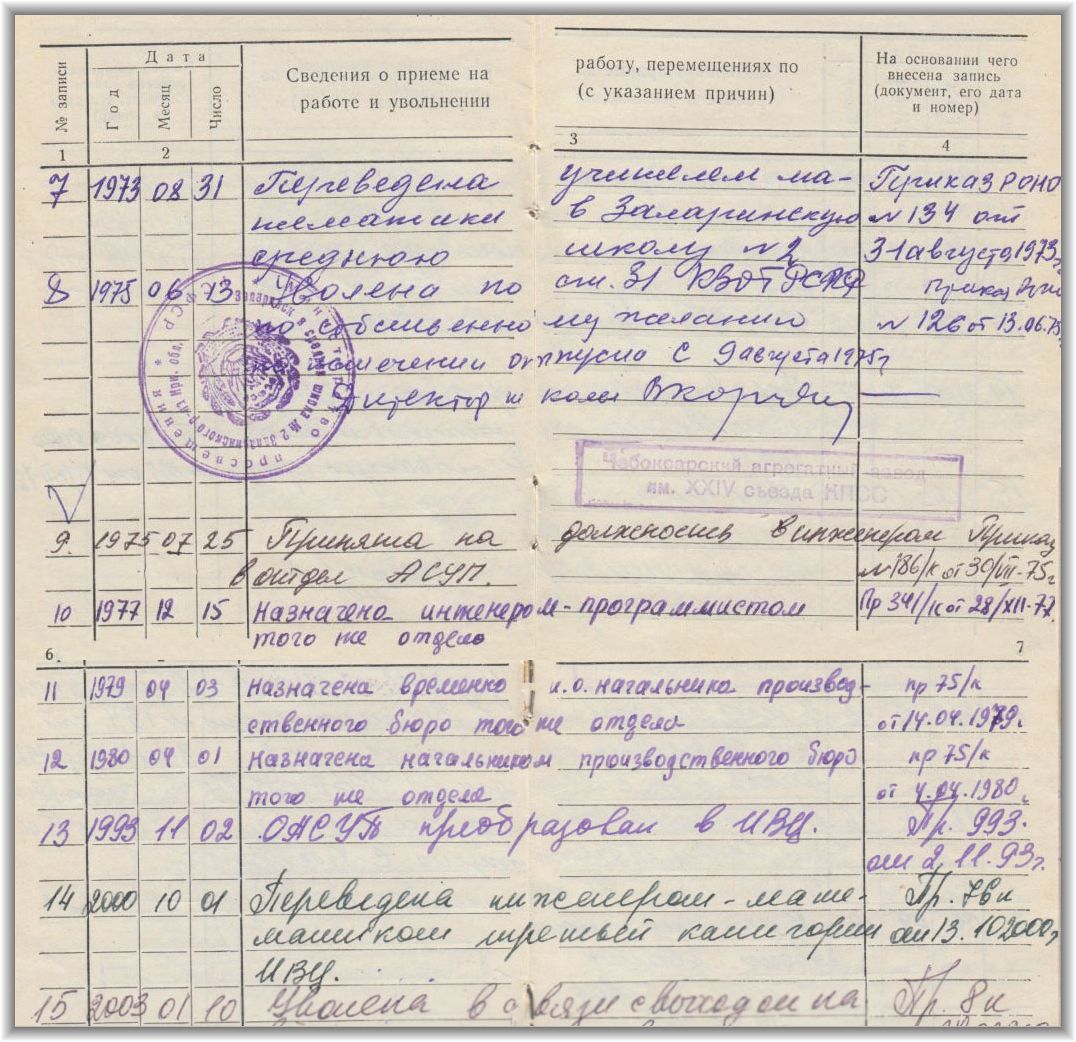 Дата
№ записи
Год
Месяц
Число
Сведения о приеме на работу, перемещениях по
работе и увольнении (с указанием причин)
На основании чего
внесена запись
(документ, его дата
и номер)
1 2 3 4
7 1973 08 31 Переведена учителем ма- Приказ РОНО
тематики в Заларинскую № 134 от
среднюю школу № 2 31 августа 1973г
8 1975 06 13 Уволена по ст. 31 КЗоТ РСФСР приказ Роно
по собственному желанию № 126 от 13.06.75
по истечении отпуска с 9 августа 1975г
Директор школы
Министерство просвещения РСФСР
Заларинская средняя школа № 2 Заларинского р-на Ирк. обл.
Чебоксарский агрегатный завод
им. XXIV съезда КПСС
9. 1975 07 25 Принята на должность инженером Приказ
в отдел АСУП. № 186/к от 30/VII-75г
10 1977 12 15 Назначена инженером-программистом Пр 341/к от 28/XII-77.
того же отдела
6. 7
11 1979 04 03 Назначена временно и.о. начальника производ- пр 75/к
ственного бюро того же отдела от 14.04.1979г.
12 1980 04 01 Назначена начальником производственного бюро пр 75/к
того же отдела от 4.04.1980г.
13 1993 11 02 ОАСУП преобразован в ИВЦ. Пр. 993.
от 2.11.93г.
14 2000 10 01 Переведена инженером-мате- Пр. 76к
матиком третьей категории от 13.10 2000г
ИВЦ.
15 2003 01 10 Уволена в связи с выходом на Пр. 8к